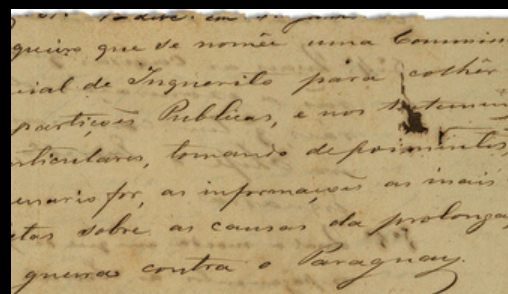 queiro que se nomêe uma Commiss
cial de Inquerito para colhêr
partições Publicas, e nos
articulares, tomando depoimentos,
ssario for, as informações as mais
etas sobre as causas da prolonga
guerra contra o Paraguay.